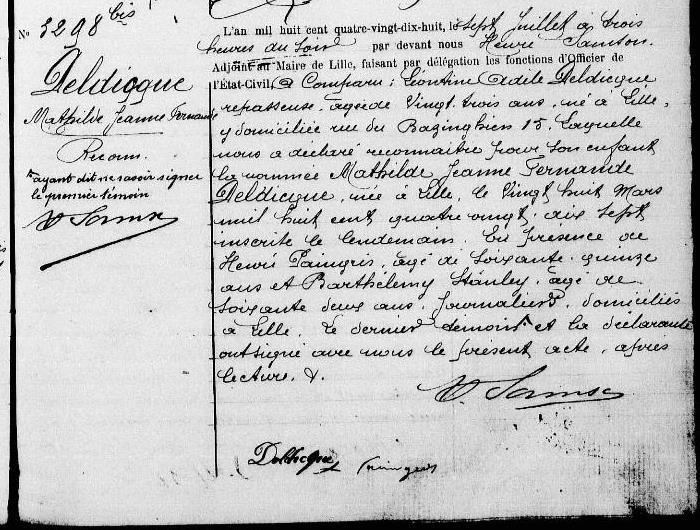 No 3298 bis
Deldicque
Mathilde Jeanne Fernande
Reconn.
ayant dit ne savoir signer
le premier témoin
H Samson
L'an mil huit cent quatre-vingt-dix-huit, le sept Juillet à trois
heures du soir par devant nous Henri Samson.
Adjoint au Maire de Lille, faisant par délégation les fonctions d'Officier de
l'État-Civil, a Comparu : Léontine Adèle Deldicque
repasseuse, agée de Vingt trois ans, née à Lille,
y domiciliée rue du Bazinghien 15. Laquelle
nous a déclaré reconnaitre pour son enfant
la nommée Mathilde Jeanne Fernande
Deldicque, née à Lille, le Vingt huit Mars
mil huit cent quatre vingt dix sept
inscrite le lendemain. En présence de
Henri Paingris, agé de soixante quinze
ans et Barthélemy Stanley, agé de
soixante deux ans, Journaliers, domiciliés
à Lille. Le dernier témoin et la déclarante
ont signé avec nous le présent acte, après
lecture. &.
H. Samson
Deldicque